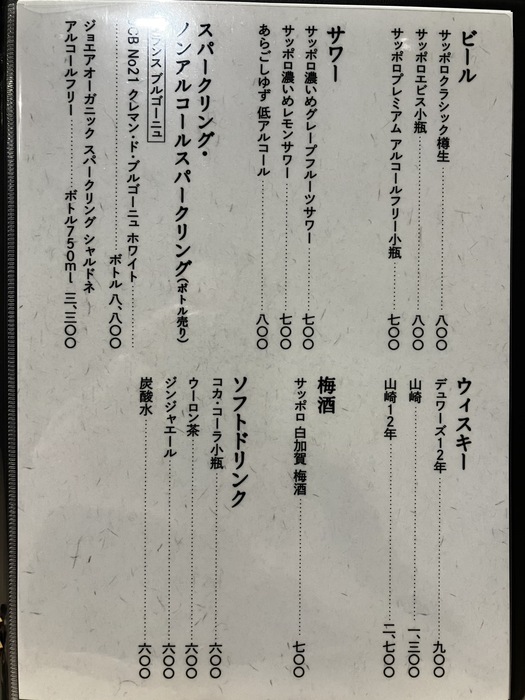 ビール
サッポロクラシック樽生……八〇〇
サッポロエビス小瓶……八〇〇
サッポロプレミアム アルコールフリー小瓶……七〇〇
サワー
サッポロ濃いめグレープフルーツサワー……七〇〇
サッポロ濃いめレモンサワー……七〇〇
あらごしゆず 低アルコール……八〇〇
スパークリング・
ノンアルコールスパークリング(ボトル売り)
ランス ブルゴーニュ
CB No21 クレマン・ド・ブルゴーニュ ホワイト……
……ボトル 八、八〇〇
ジョエアオーガニック スパークリング シャルドネ
アルコールフリー……ボトル750ml 三、三〇〇
ウィスキー
デュワーズ12年……九〇〇
山崎……一、三〇〇
山崎12年……二、七〇〇
梅酒
サッポロ 白加賀 梅酒……七〇〇
ソフトドリンク
コカ・コーラ小瓶……六〇〇
ウーロン茶……六〇〇
ジンジャエール……六〇〇
炭酸水……六〇〇